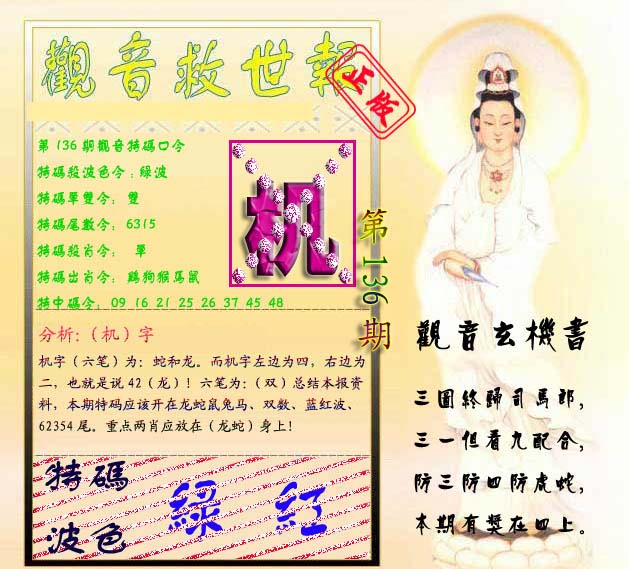 觀音救世報
正版
第136期觀音特碼口令
特碼殺波色令:綠波
特碼單雙令: 雙
特碼尾數令: 6315
特碼殺肖令: 單
特碼出肖令: 鷄狗猴馬鼠
特中碼令: 09 16 21 25 26 37 45 48
机
第136期
分析:(机)字
机字(六笔)为:蛇和龙。而机字左边为四,右边为
二,也就是说42(龙)!六笔为:(双)总结本报资
料,本期特码应该开在龙蛇鼠兔马、双数、蓝红波、
62354尾。重点两肖应放在(龙蛇)身上!
特碼
波色
綠 紅
觀音玄機書
三國終歸司馬郎,
三一但看九配合,
防三防四防虎蛇,
本期有獎在四上。